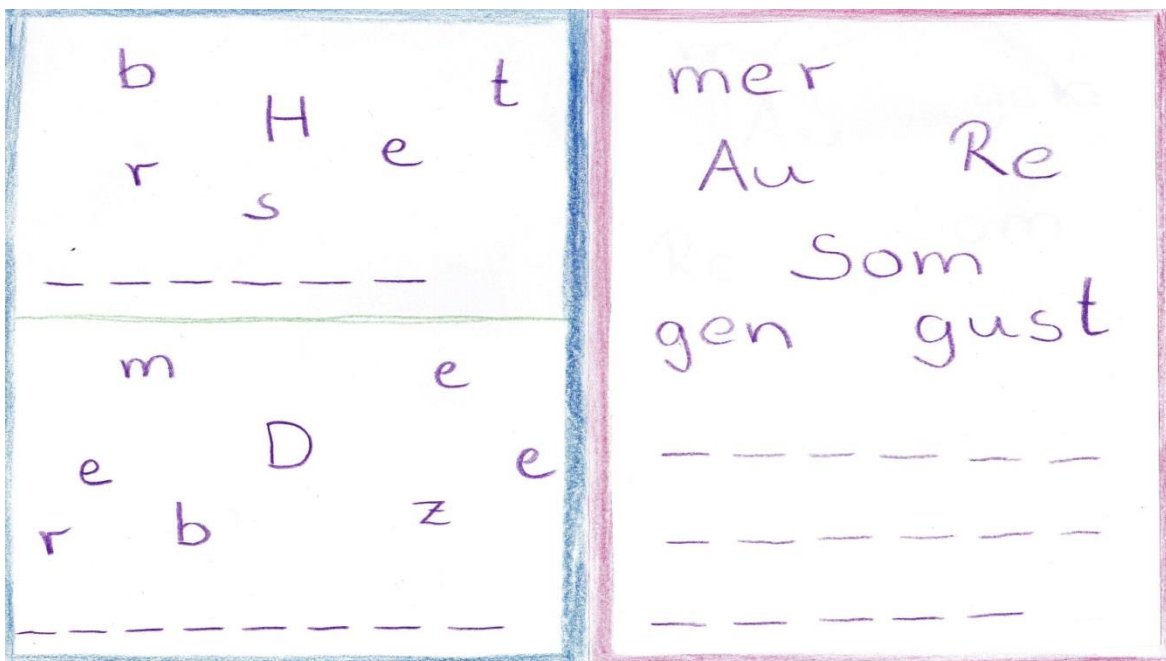 b t
H
r e
s
_ _ _ _ _ _
m e
D
e e
r b z
_ _ _ _ _ _ _ _
mer
Au Re
Som
gen gust
_ _ _ _ _ _
_ _ _ _ _ _
_ _ _ _ _